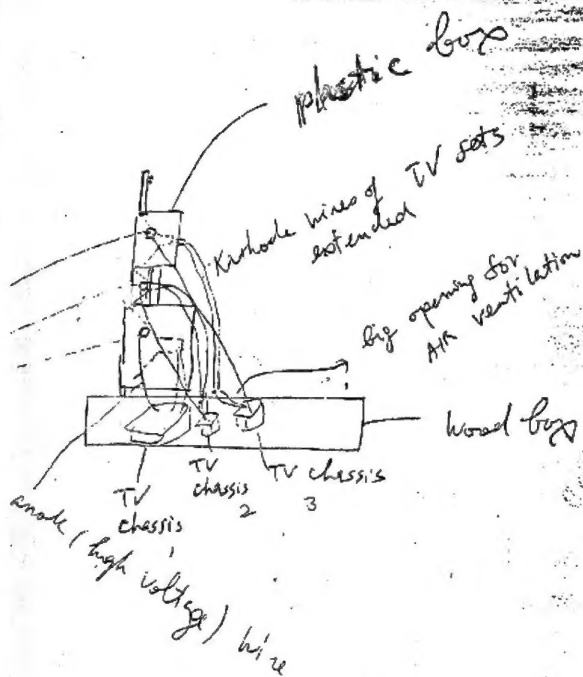 plastic box
Kathode wires of TV sets
extended
big opening for
AIR ventilation
wood box
TV
chassis
1
TV
chassis
2
TV chassis
3
anode (high voltage) wire